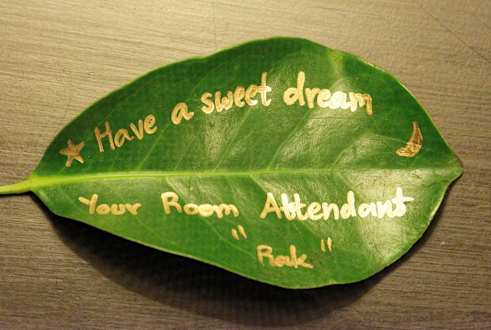 Have a sweet dream
Your Room Attendant
"Rak"